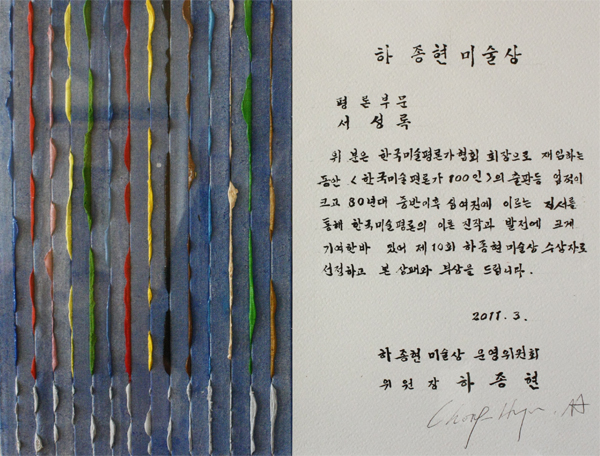 하 종현 미술상
평론부문
서 성록
위 분은 한국미술평론가협회 회장으로 재임하는
동안 <한국미술평론가 100인>의 출판등 업적이
크고 80년대 중반이후 십여권에 이르는 저서를
통해 한국미술평론의 이론 전작과 발전에 크게
기여한바 있어 제10회 하종현미술상 수상자로
선정하고 본 상패와 부상을 드립니다.
2011. 3.
하종현 미술상 운영위원회
위 원 장 하 종 현